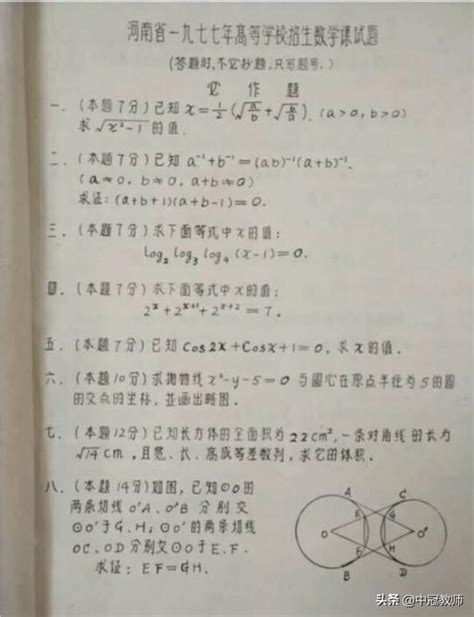 河南省一九七七年高等学校招生数学课试题
(答题时,不必抄题,只写题号.)
必作题
一.(本题7分)已知 x=½(√(a/b)+√(b/a)). (a>0, b>0)
求 √(x²-1) 的值.
二.(本题7分)已知 a⁻¹+b⁻¹=(ab)⁻¹(a+b)⁻¹.
(a≠0, b≠0, a+b≠0)
求证: (a+b+1)(a+b-1)=0.
三.(本题7分)求下面等式中x的值:
log₂ log₃ log₄ (x-1)=0.
四.(本题7分)求下面等式中x的值:
2ˣ+2ˣ⁺¹+2ˣ⁺²=7.
五.(本题7分)已知 Cos2x+Cosx+1=0, 求x的值.
六.(本题10分)求抛物线 x²-y-5=0 与圆心在原点半径为5的圆
的交点的坐标,並画出略图.
七.(本题12分)已知长方体的全面积为22cm²,一条对角线的长为
√14 cm,且宽、长、高成等差数列,求它的体积.
八.(本题14分)如图,已知⊙O的
两条切线O'A、O'B分别交
⊙O'于G.H;⊙O'的两条切线
OC、OD分别交⊙O于E.F.
求证: EF=GH.
A C
E G
O O'
F H
B D
头条 @中冠教师